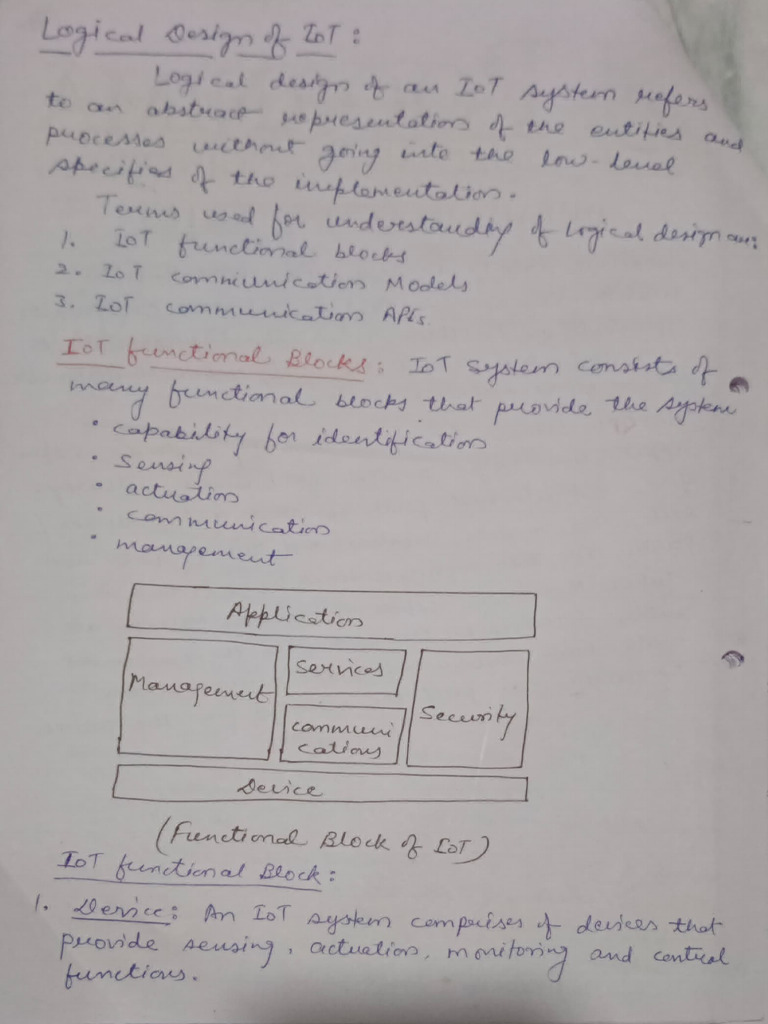 Logical Design of IoT :
Logical design of an IoT system refers
to an abstract representation of the entities and
processes without going into the low-level
specifies of the implementation.
Terms used for understanding of Logical design are:
1. IoT functional blocks
2. IoT communication Models
3. IoT communication APIs.
IoT functional Blocks: IoT system consists of
many functional blocks that provide the system
• capability for identification
• Sensing
• actuation
• communication
• management
Application
Management
Services
Security
communi
cations
Device
(Functional Block of IoT)
IoT functional Block :
1. Device: An IoT system comprises of devices that
provide sensing, actuation, monitoring and control
functions.